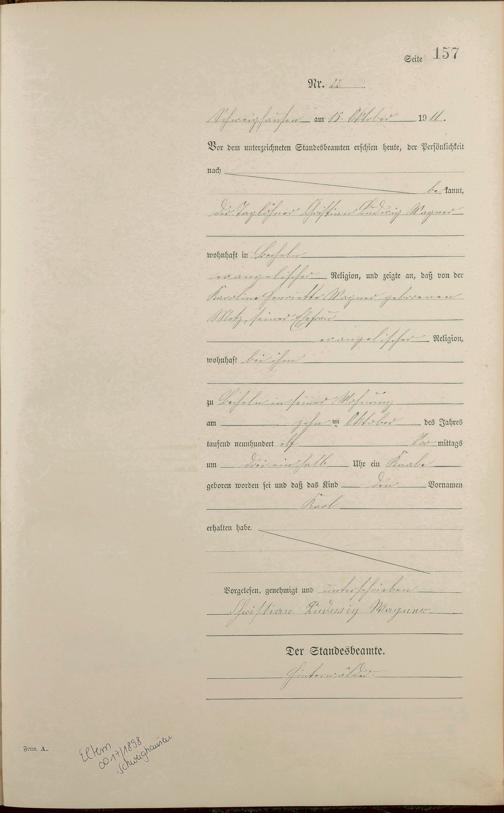 Seite 157
Nr. 22
Schweighausen am 15. Oktober 1911.
Vor dem unterzeichneten Standesbeamten erschien heute, der Persönlichkeit
nach
be kannt,
der Taglöhner Christian Ludwig Wagner
wohnhaft in Becheln
evangelischer Religion, und zeigte an, daß von der
Karoline Henriette Wagner geborenen
Metz, seiner Ehefrau
evangelischer Religion,
wohnhaft bei ihm
zu Becheln in seiner Wohnung
am zehn ten Oktober des Jahres
tausend neunhundert elf Vor mittags
um drei einhalb Uhr ein Knabe
geboren worden sei und daß das Kind den Vornamen
Karl
erhalten habe.
Vorgelesen, genehmigt und unterschrieben
Christian Ludwig Wagner
Der Standesbeamte.
Hinterwälder
Form. A.
Eltern
0017/1898
Schweighausen